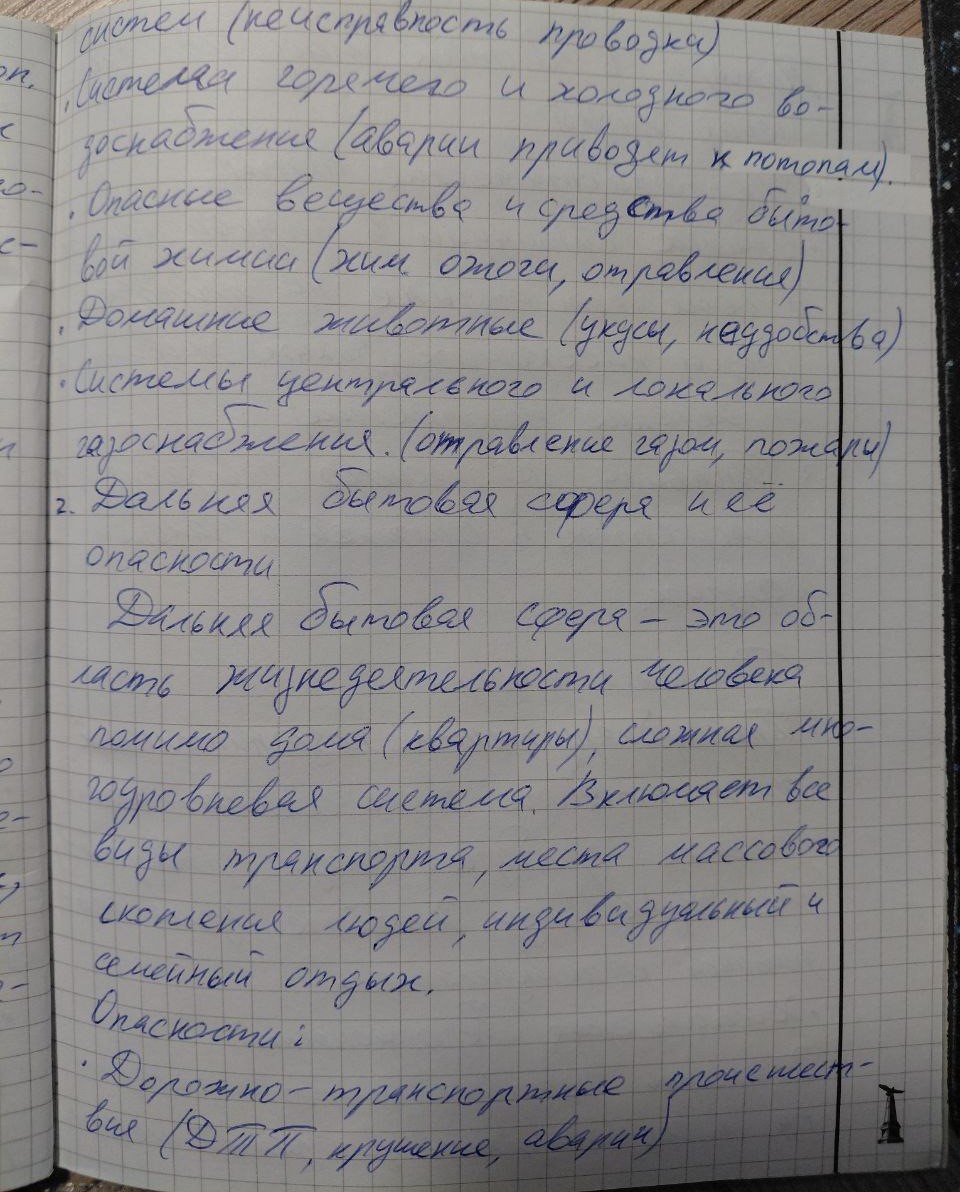 систем (неисправность проводки)
· Система горячего и холодного во-
доснабжения (аварии приводят к потопам).
· Опасные вещества и средства быто-
вой химии (хим. ожоги, отравления)
· Домашние животные (укусы, неудобства)
· Системы центрального и локального
газоснабжения. (отравление газом, пожары)
2. Дальняя бытовая сфера и её
опасности
Дальняя бытовая сфера – это об-
ласть жизнедеятельности человека
помимо дома (квартиры), сложная мно-
гоуровневая система. Включает все
виды транспорта, места массового
скопления людей, индивидуальный и
семейный отдых.
Опасности:
· Дорожно-транспортные происшест-
вия (ДТП, крушение, аварии)